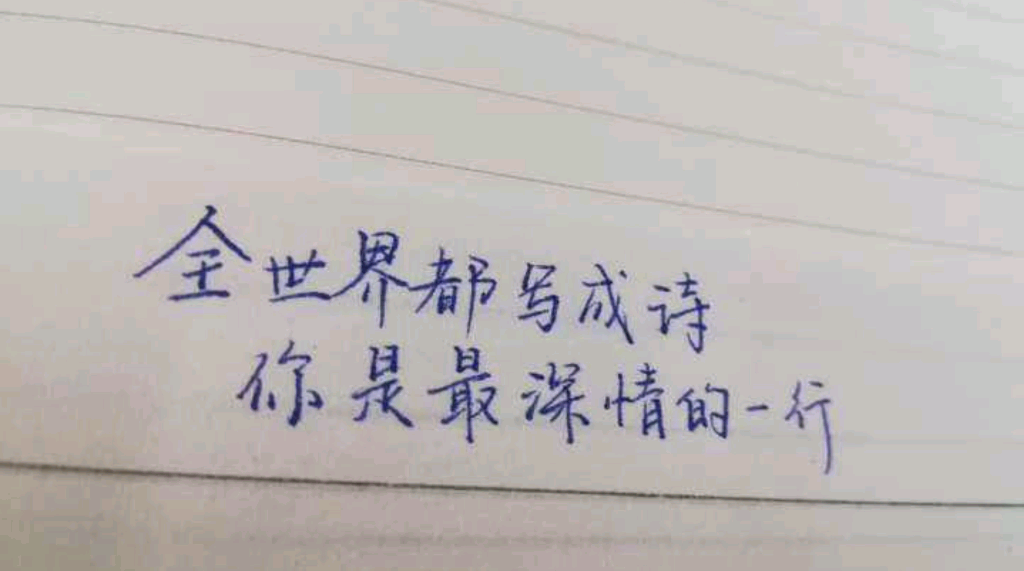 全世界都写成诗
你是最深情的一行